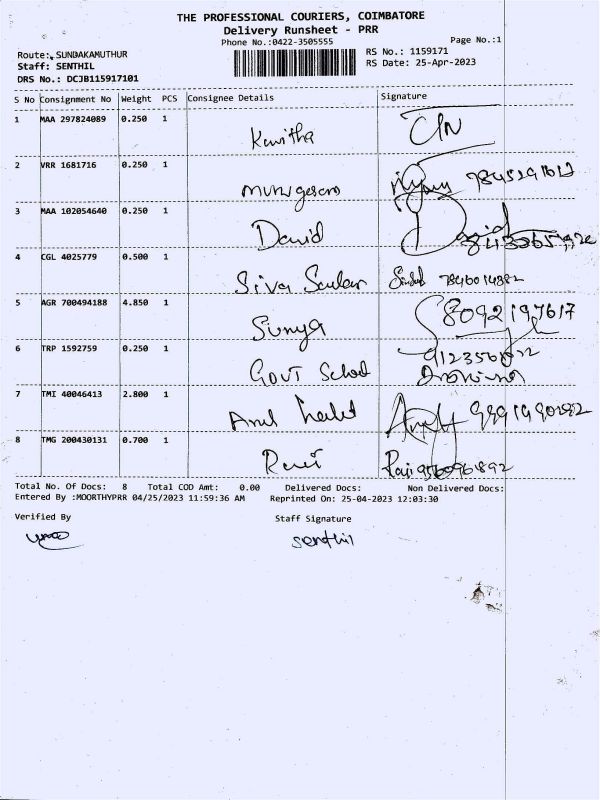 THE PROFESSIONAL COURIERS, COIMBATORE
Delivery Runsheet - PRR
Phone No.:0422-3505555
Page No.:1
Route: SUNDAKAMUTHUR
RS No.: 1159171
Staff: SENTHIL
RS Date: 25-Apr-2023
DRS No.: DCJB115917101
S No Consignment No Weight PCS Consignee Details Signature
1 MAA 297824089 0.250 1 Kavitha
2 VRR 1681716 0.250 1 murugesan
3 MAA 102054640 0.250 1 David David
4 CGL 4025779 0.500 1 Siva 7846014882
5 AGR 700494188 4.850 1 Surya 8092197617
6 TRP 1592759 0.250 1 GOVT School
7 TMI 40046413 2.800 1
8 TMG 200430131 0.700 1 Ravi
Total No. Of Docs: 8 Total COD Amt: 0.00 Delivered Docs: Non Delivered Docs:
Entered By :MOORTHYPRR 04/25/2023 11:59:36 AM Reprinted On: 25-04-2023 12:03:30
Verified By Staff Signature
senthil